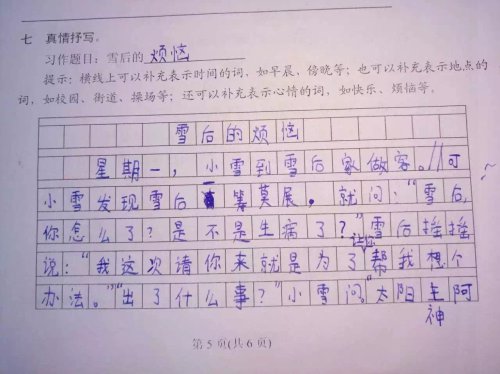 七 真情抒写。
习作题目：雪后的 烦恼
提示：横线上可以补充表示时间的词，如早晨、傍晚等；也可以补充表示地点的
词，如校园、街道、操场等；还可以补充表示心情的词，如快乐、烦恼等。
雪后的烦恼
星期一，小雪到雪后家做客。//可
小雪发现雪后一筹莫展。就问："雪后，
你怎么了？是不是生病了？"雪后摇摇
说："我这次请你来就是为了让你帮我想个
办法。""出了什么事？"小雪问。"太阳生阿
神
第5页(共6页)